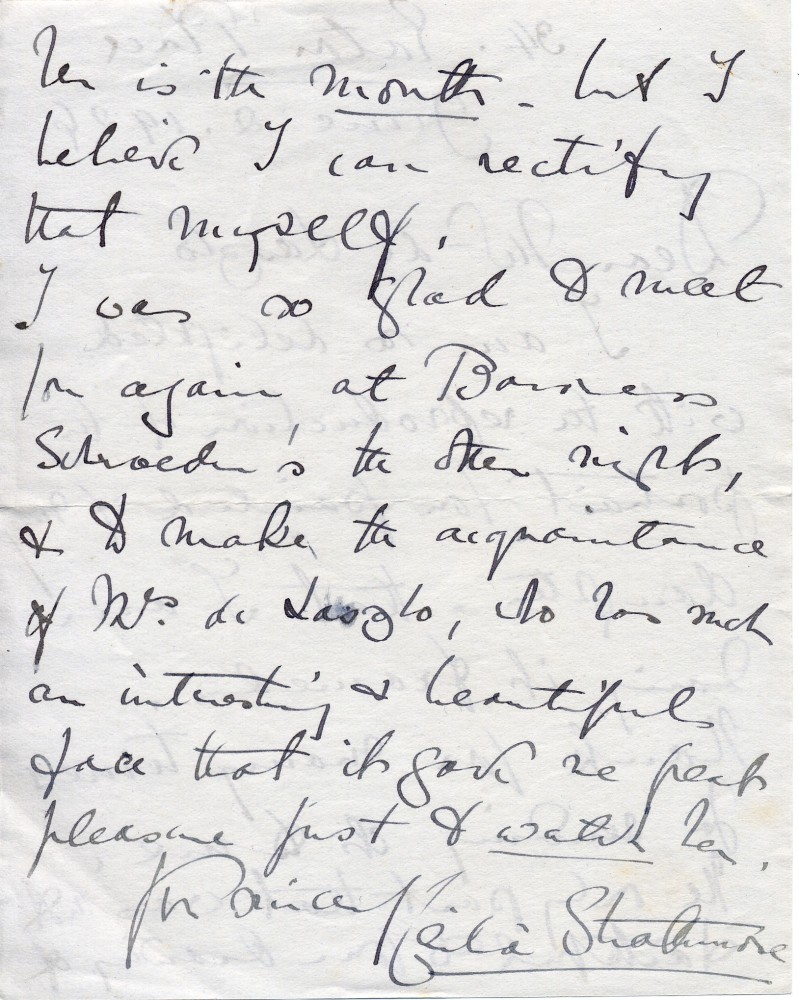 her is the month - but I
believe I can rectify
that myself.
I was so glad to meet
you again, at Baroness
Schroeder's the other night,
& to make the acquaintance
of Mrs. de Laszlo, who has such
an interesting & beautiful
face that it gave me great
pleasure just to watch her.
Yr sincerely
Cecilia Strathmore